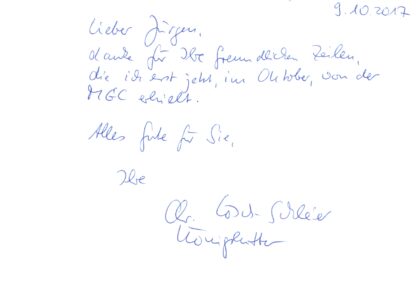 9.10.2017
Lieber Jürgen,
danke für Ihre freundlichen Zeilen,
die ich erst jetzt, im Oktober, von der
MGC erhielt.
Alles Gute für Sie,
Ihre
Chr.